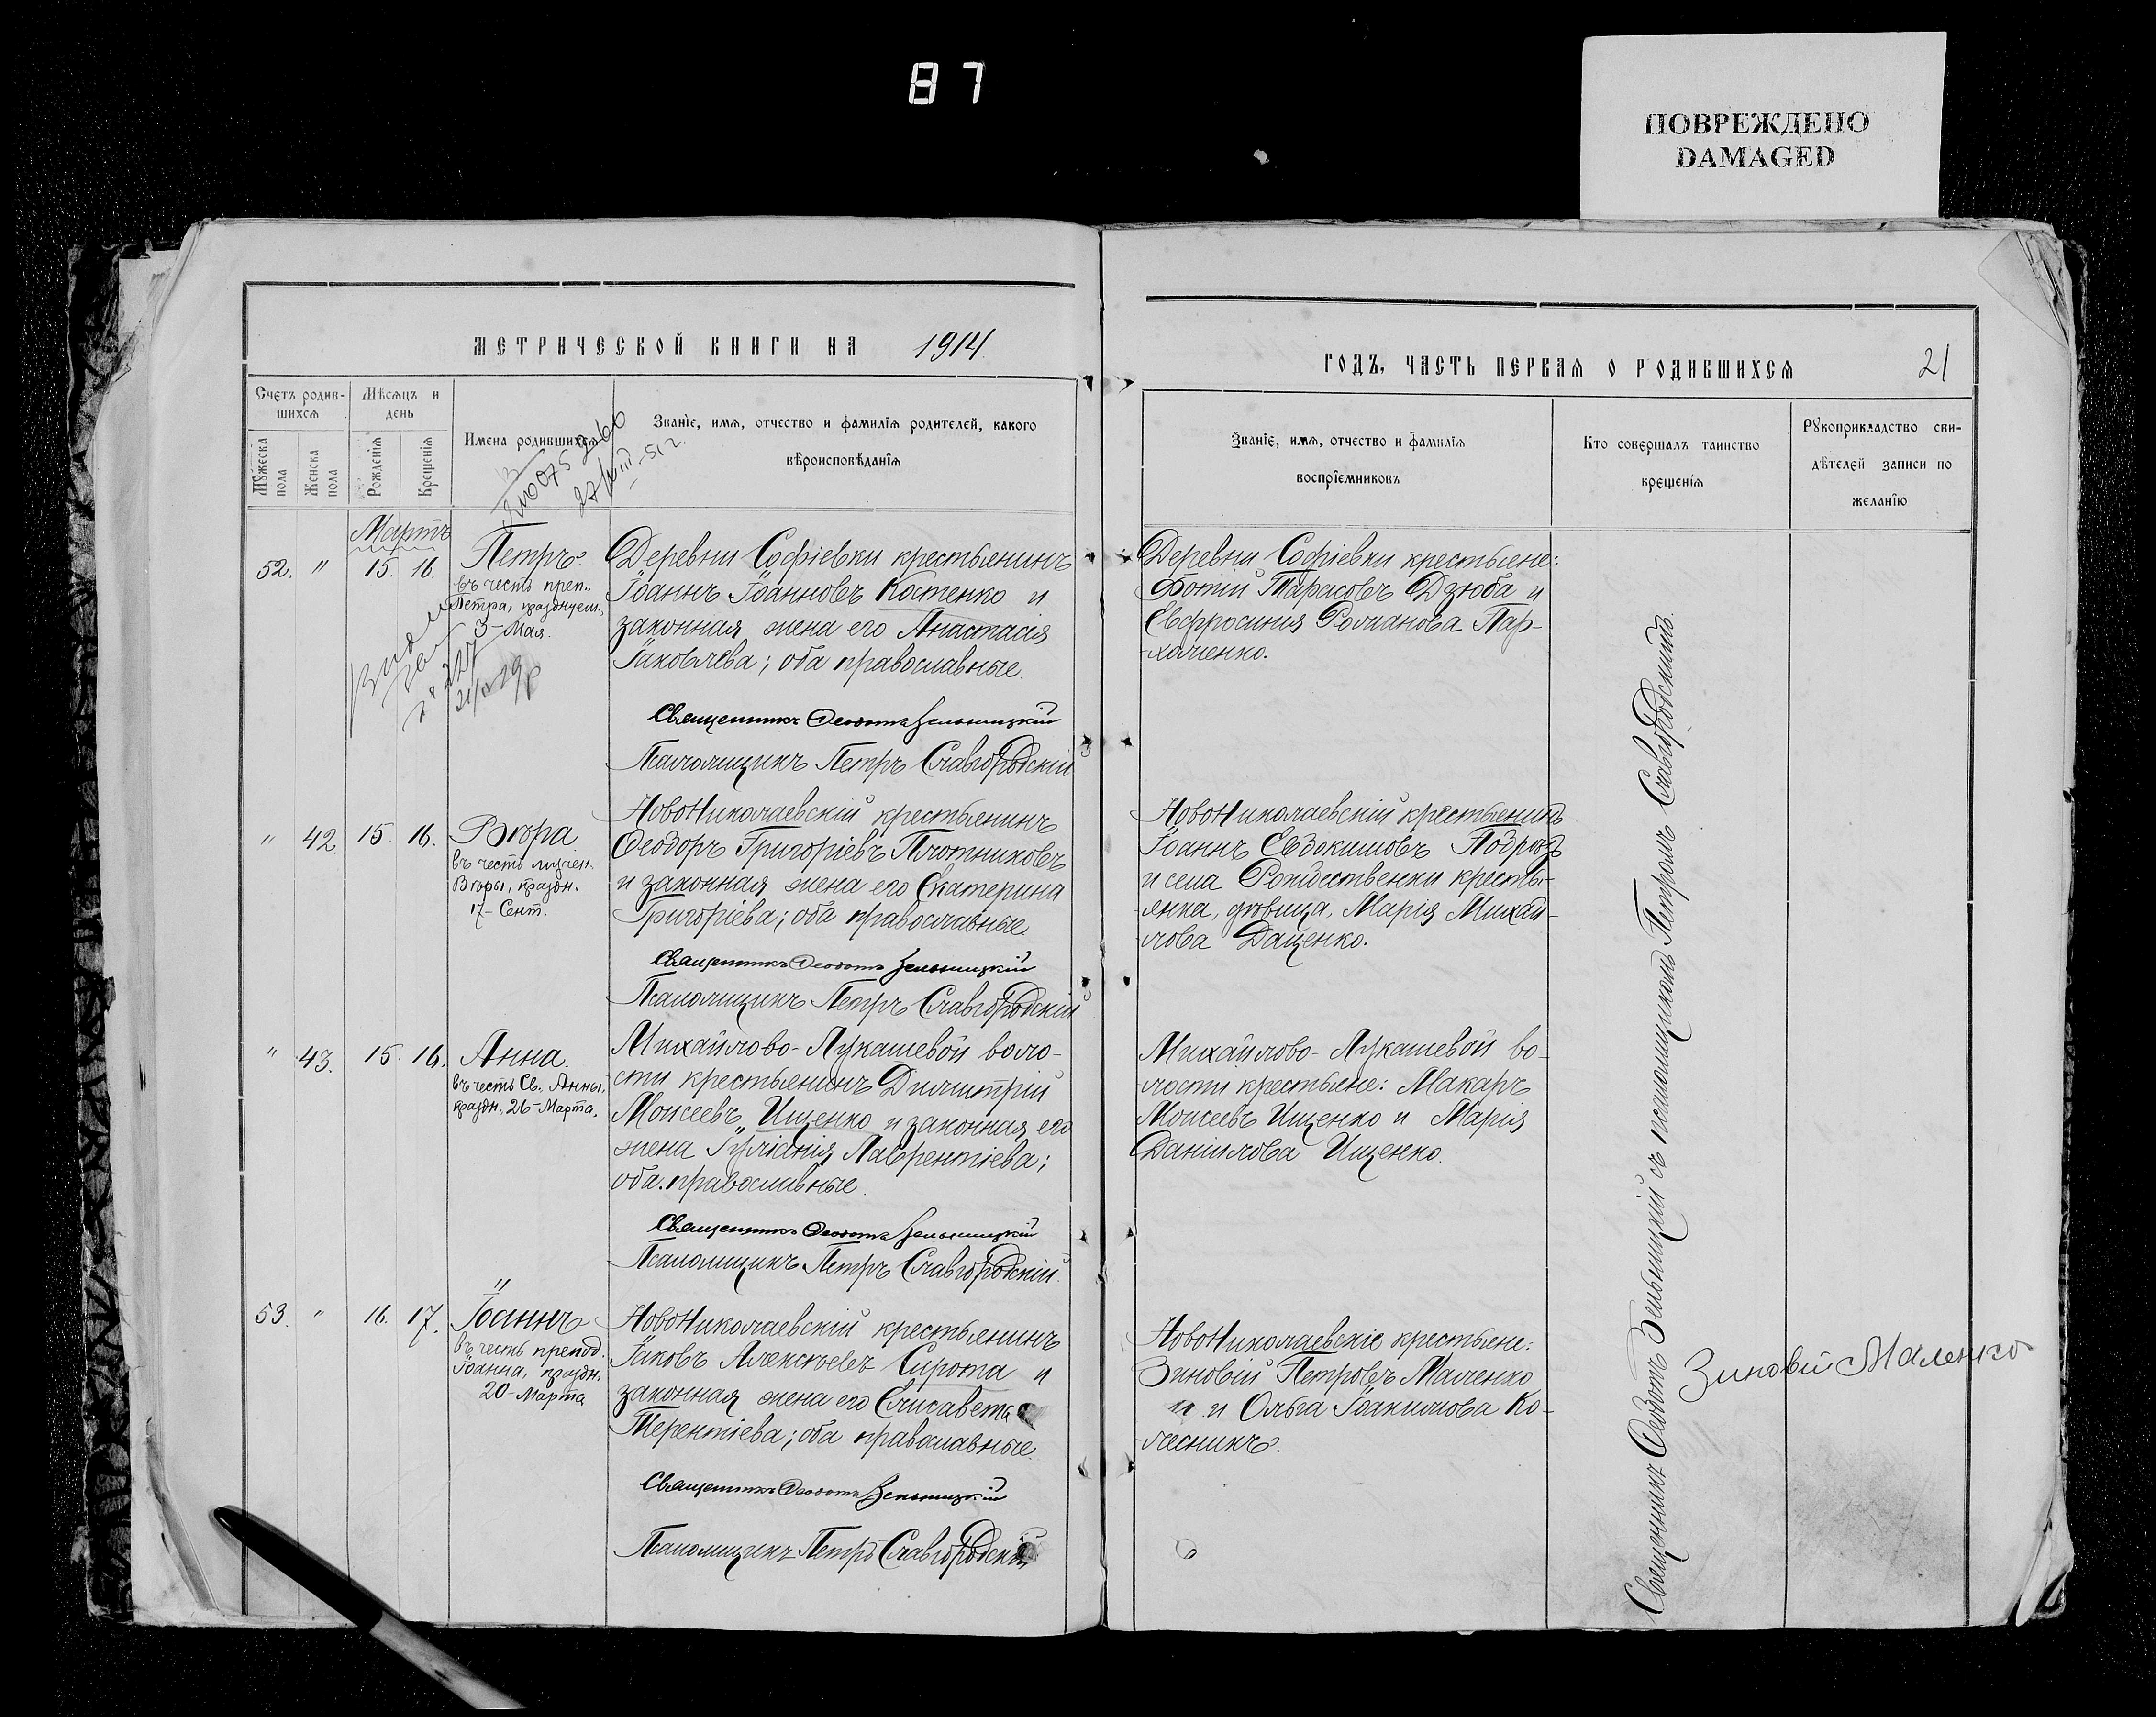 87
ПОВРЕЖДЕНО
DAMAGED
МЕТРИЧЕСКОЙ КНИГИ НА 1914
Счетъ родив-
шихся
Мѣсяцъ и
день
Мужеска
пола
Женска
пола
Рожденія
Крещенія
Имена родившихся
Званіе, имя, отчество и фамилія родителей, какого
вѣроисповѣданія
27/VIII-51 г.
Мартъ
52. " 15. 16.
Петръ
въ честь преп.
Петра, празднуем.
3-Мая.
Деревни Софіевки крестьянинъ
Іоаннъ Іоанновъ Костенко и
законная жена его Анастасія
Іаковлева; оба православные.
Священникъ Феодотъ Зельницкій
Псаломщикъ Петръ Славгородскій
" 42. 15. 16.
Вѣра
въ честь мучен.
Вѣры, праздн.
17-Сент.
НовоНиколаевскій крестьянинъ
Феодоръ Григоріевъ Плотниковъ
и законная жена его Екатерина
Григоріева; оба православные.
Священникъ Феодотъ Зельницкій
Псаломщикъ Петръ Славгородскій
" 43. 15. 16.
Анна.
въ честь Св. Анны,
праздн. 26-Марта.
Михайлово-Лукашевой воло-
сти крестьянинъ Димитрій
Моисеевъ Ищенко и законная его
жена Іуліанія Лаврентіева;
оба православные.
Священникъ Феодотъ Зельницкій
Псаломщикъ Петръ Славгородскій
53. " 16. 17.
Іоаннъ
въ честь препод.
Іоанна, праздн.
20-Марта
НовоНиколаевскій крестьянинъ
Іаковъ Алексѣевъ Сирота и
законная жена его Елисавета
Терентіева; оба православные.
Священникъ Феодотъ Зельницкій
Псаломщикъ Петръ Славгородскій
ГОДЪ, ЧАСТЬ ПЕРВАЯ О РОДИВШИХСЯ 21
Званіе, имя, отчество и фамилія
воспріемниковъ
Кто совершалъ таинство
крещенія
Рукоприкладство сви-
дѣтелей записи по
желанію
Деревни Софіевки крестьяне:
Фотій Тарасовъ Дзюба и
Евфросинія Романова Пар-
хоменко.
НовоНиколаевскій крестьянинъ
Іоаннъ Евдокимовъ Подрѣзъ
и села Рождественки кресть-
янка, дѣвица, Марія Михай-
лова Даценко.
Михайлово-Лукашевой во-
лости крестьяне: Макаръ
Моисеевъ Ищенко и Марія
Даніилова Ищенко.
НовоНиколаевскіе крестьяне:
Зиновій Петровъ Маленко
и и Ольга Іоакимова Ко-
лесникъ.
Священникъ Феодотъ Зельницкій съ псаломщикомъ Петромъ Славгородскимъ.
Зиновій Маленко